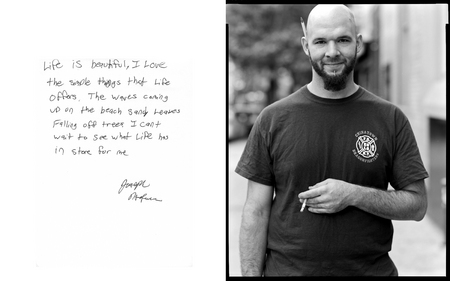 Life is beautiful, I Love
the simple things that Life
offers. The waves coming
up on the beach sand, Leaves
Falling off trees I can't
wait to see what Life has
in store for me
Joseph